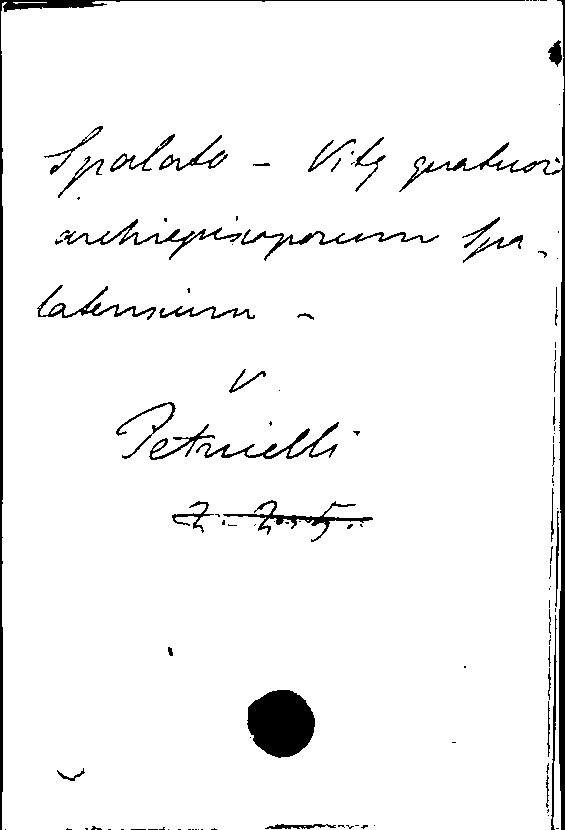 Spalato – Vitę quatuor
archiepiscoporum Spa-
latensium –
V
Petrucelli